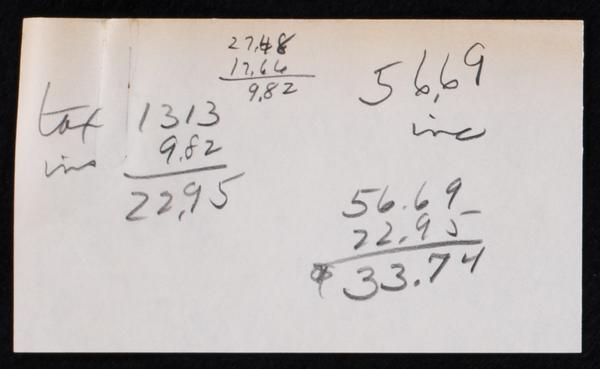 27.48
17.66
9.82
56,69
inc
tax 1313
ins 9.82
22,95
56.69
22.95
$33.74